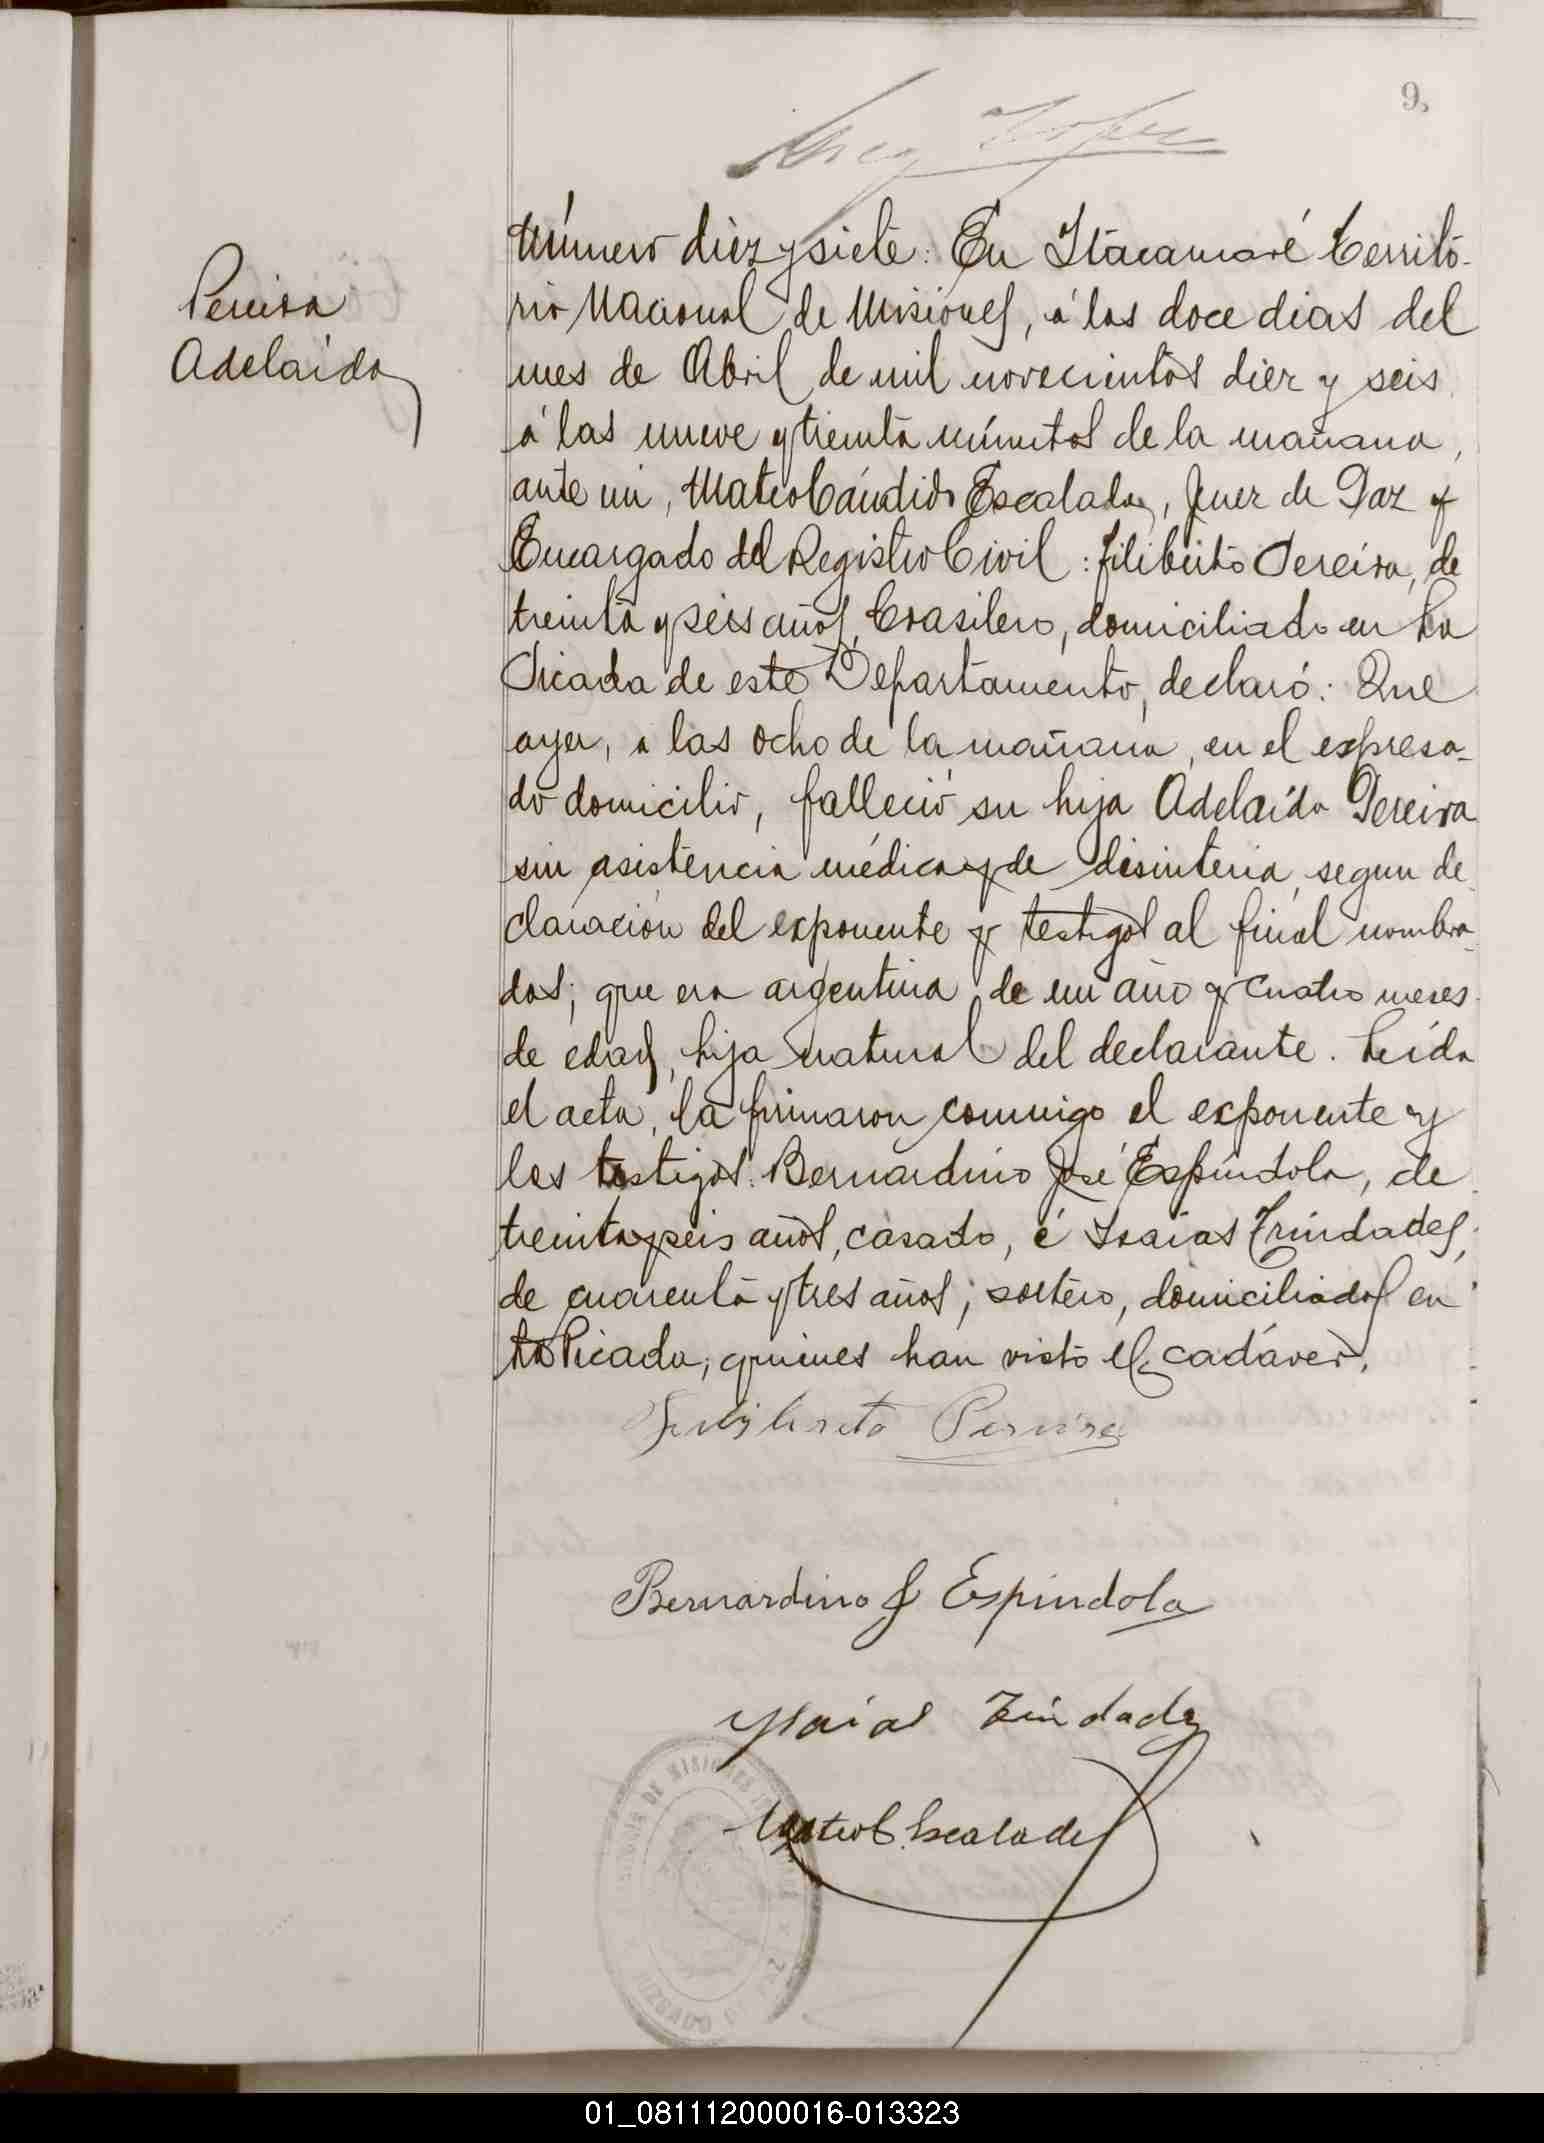 9.
Pereira
Adelaida
Número diez y siete: En Itacaruaré Territo-
rio Nacional de Misiones, á los doce dias del
mes de Abril de mil novecientos diez y seis,
á las nueve y treinta minutos de la mañana,
ante mi, Mateo Cándido Escalada, Juez de Paz y
Encargado del Registro Civil: Filiberto Pereira, de
treinta y seis años, brasilero, domiciliado en La
Picada de este Departamento, declaró: Que
ayer, a las ocho de la mañana, en el expresa-
do domicilio, falleció su hija Adelaida Pereira
sin asistencia médica y de disinteria, segun de-
claración del exponente y testigos al final nombra-
dos; que era argentina, de un año y cuatro meses
de edad, hija natural del declarante. Leida
el acta, la firmaron conmigo el exponente y
los testigos: Bernardino José Espíndola, de
treinta y seis años, casado, é Isaias Trindades,
de cuarenta y tres años; soltero, domiciliados en
La Picada; quienes han visto el cadáver.
Filiberto Pereira
Bernardino J Espindola
Ysaias Trindade
Mateo C. Escalada
DE MISIONES
JUZGADO DE PAZ
01_081112000016-013323